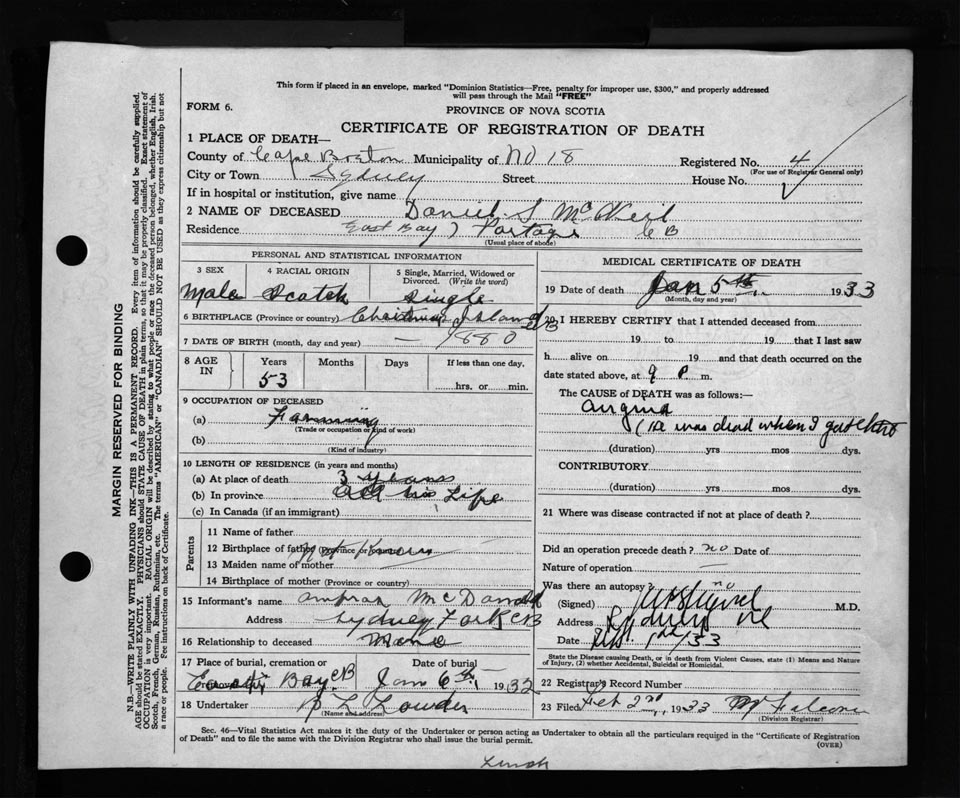 This form if placed in an envelope, marked "Dominion Statistics—Free, penalty for improper use, $300," and properly addressed
will pass through the Mail "FREE"
FORM 6.
PROVINCE OF NOVA SCOTIA
CERTIFICATE OF REGISTRATION OF DEATH
1 PLACE OF DEATH—
County of Cape Breton Municipality of No 18 Registered No. 4
(For use of Registrar General only)
City or Town Sydney Street House No.
If in hospital or institution, give name
2 NAME OF DECEASED Daniel S McNeil
Residence East Bay Portage C B
(Usual place of abode)
PERSONAL AND STATISTICAL INFORMATION
3 SEX 4 RACIAL ORIGIN 5 Single, Married, Widowed or
Divorced. (Write the word)
Male Scotch Single
6 BIRTHPLACE (Province or country) Christmas Island CB
7 DATE OF BIRTH (month, day and year) — 1880
8 AGE IN Years Months Days If less than one day,
53 hrs. or min.
9 OCCUPATION OF DECEASED
(a) Farming
(Trade or occupation or kind of work)
(b)
(Kind of industry)
10 LENGTH OF RESIDENCE (in years and months)
(a) At place of death 3 years
(b) In province all his Life
(c) In Canada (if an immigrant)
Parents
11 Name of father
12 Birthplace of father (Province or country) not known
13 Maiden name of mother
14 Birthplace of mother (Province or country)
15 Informant's name McDonald
Address Sydney Forks CB
16 Relationship to deceased None
17 Place of burial, cremation or Date of burial
East Bay CB Jan 6th 1932
18 Undertaker L Lowden
(Name and address)
MEDICAL CERTIFICATE OF DEATH
19 Date of death Jan 5th 1933
(Month, day and year)
20 I HEREBY CERTIFY that I attended deceased from
19 to 19 that I last saw
h alive on 19 and that death occurred on the
date stated above, at 9 P m.
The CAUSE of DEATH was as follows:—
Angina
(He was dead when I got there
(duration) yrs mos dys.
CONTRIBUTORY
(duration) yrs mos dys.
21 Where was disease contracted if not at place of death?
Did an operation precede death? no Date of
Nature of operation —
Was there an autopsy? no
(Signed) M.D.
Address Sydney
Date 1st/33
State the Disease causing Death, or in death from Violent Causes, state (1) Means and
Nature of Injury, (2) whether Accidental, Suicidal or Homicidal.
22 Registrar's Record Number
23 Filed Feb 2nd 1933
(Division Registrar)
Sec. 46—Vital Statistics Act makes it the duty of the Undertaker or person acting as Undertaker to obtain all the particulars required in the "Certificate of Registration
of Death" and to file the same with the Division Registrar who shall issue the burial permit.
(OVER)
MARGIN RESERVED FOR BINDING
N.B.—WRITE PLAINLY WITH UNFADING INK—THIS IS A PERMANENT RECORD. Every item of information should be carefully supplied.
AGE should be stated EXACTLY. PHYSICIANS should STATE CAUSE OF DEATH in plain terms, so that it may be properly classified. Exact statement of
OCCUPATION is very important. RACIAL ORIGIN will be described by stating to what people or race the deceased person belonged, whether English, Irish,
Scotch, French, German, Russian, Ruthenian, etc. The terms "AMERICAN" or "CANADIAN" SHOULD NOT BE USED as they express citizenship but not
a race or people. See instructions on back of Certificate.